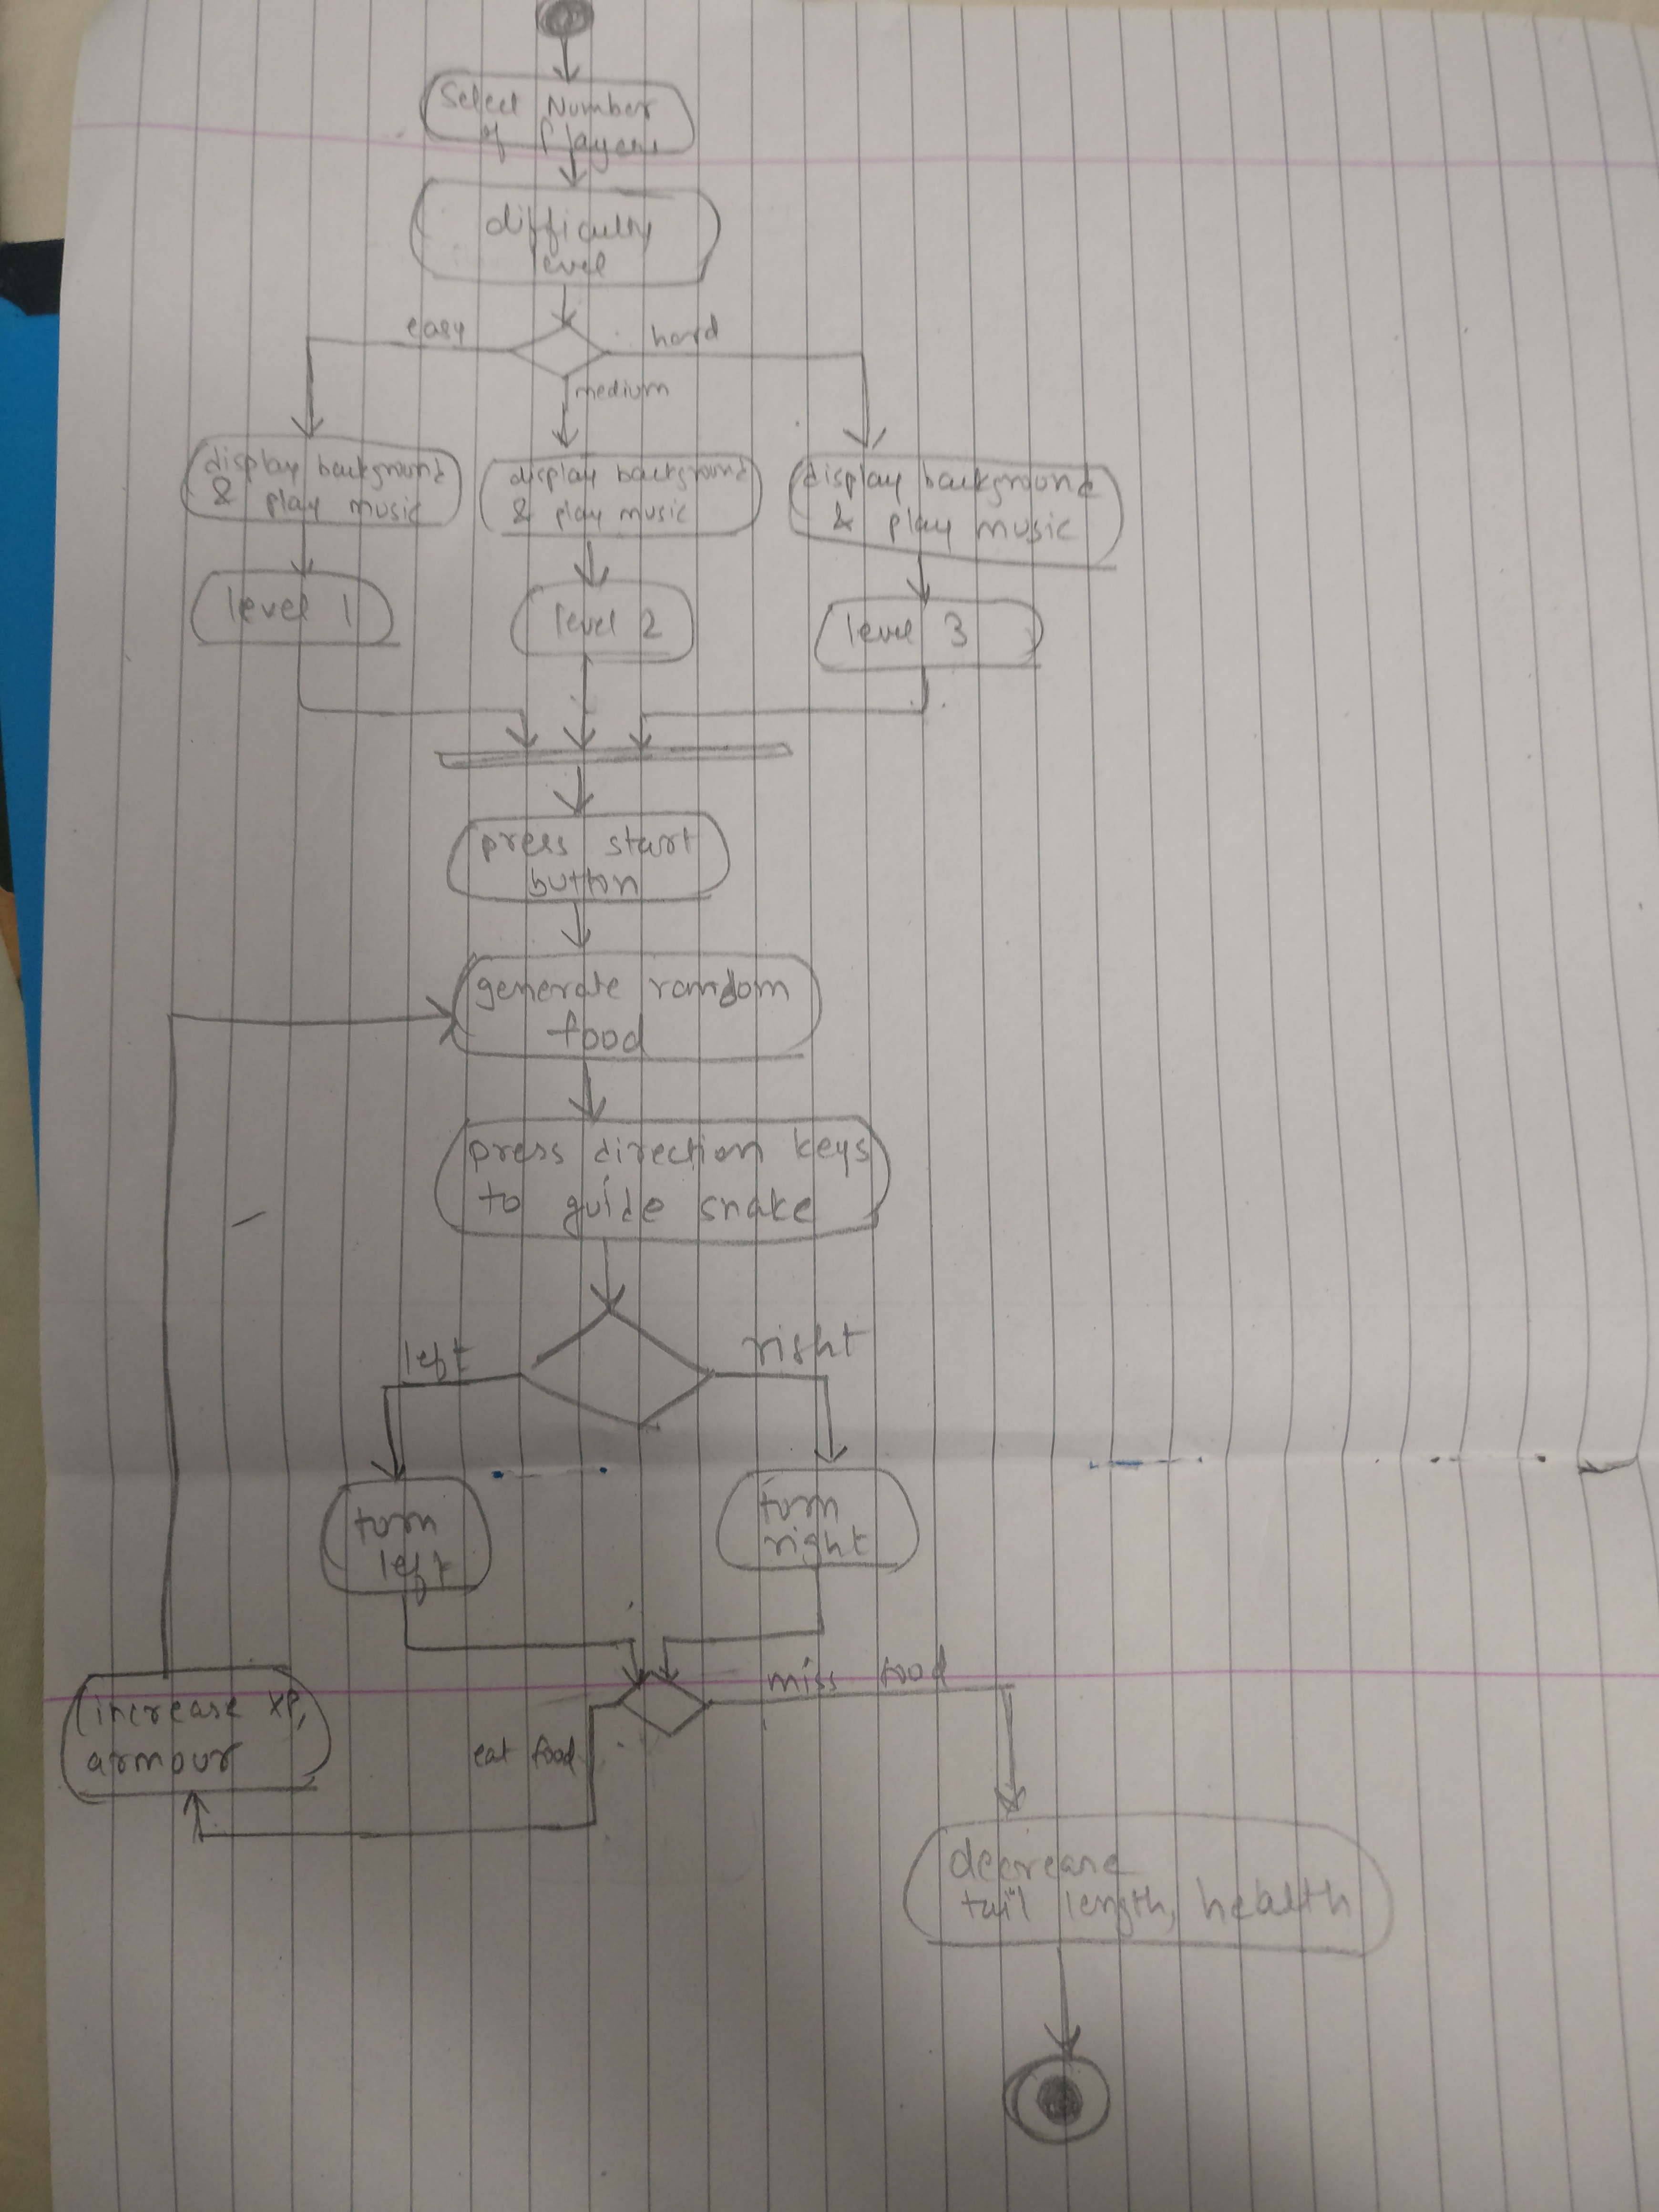 Select Number
of Players
difficulty
level
easy
hard
medium
display background
& play music
display background
& play music
display background
& play music
level 1
level 2
level 3
press start
button
generate random
food
press direction keys
to guide snake
left
right
turn
left
turn
right
miss food
increase XP,
armour
eat food
decrease
tail length, health